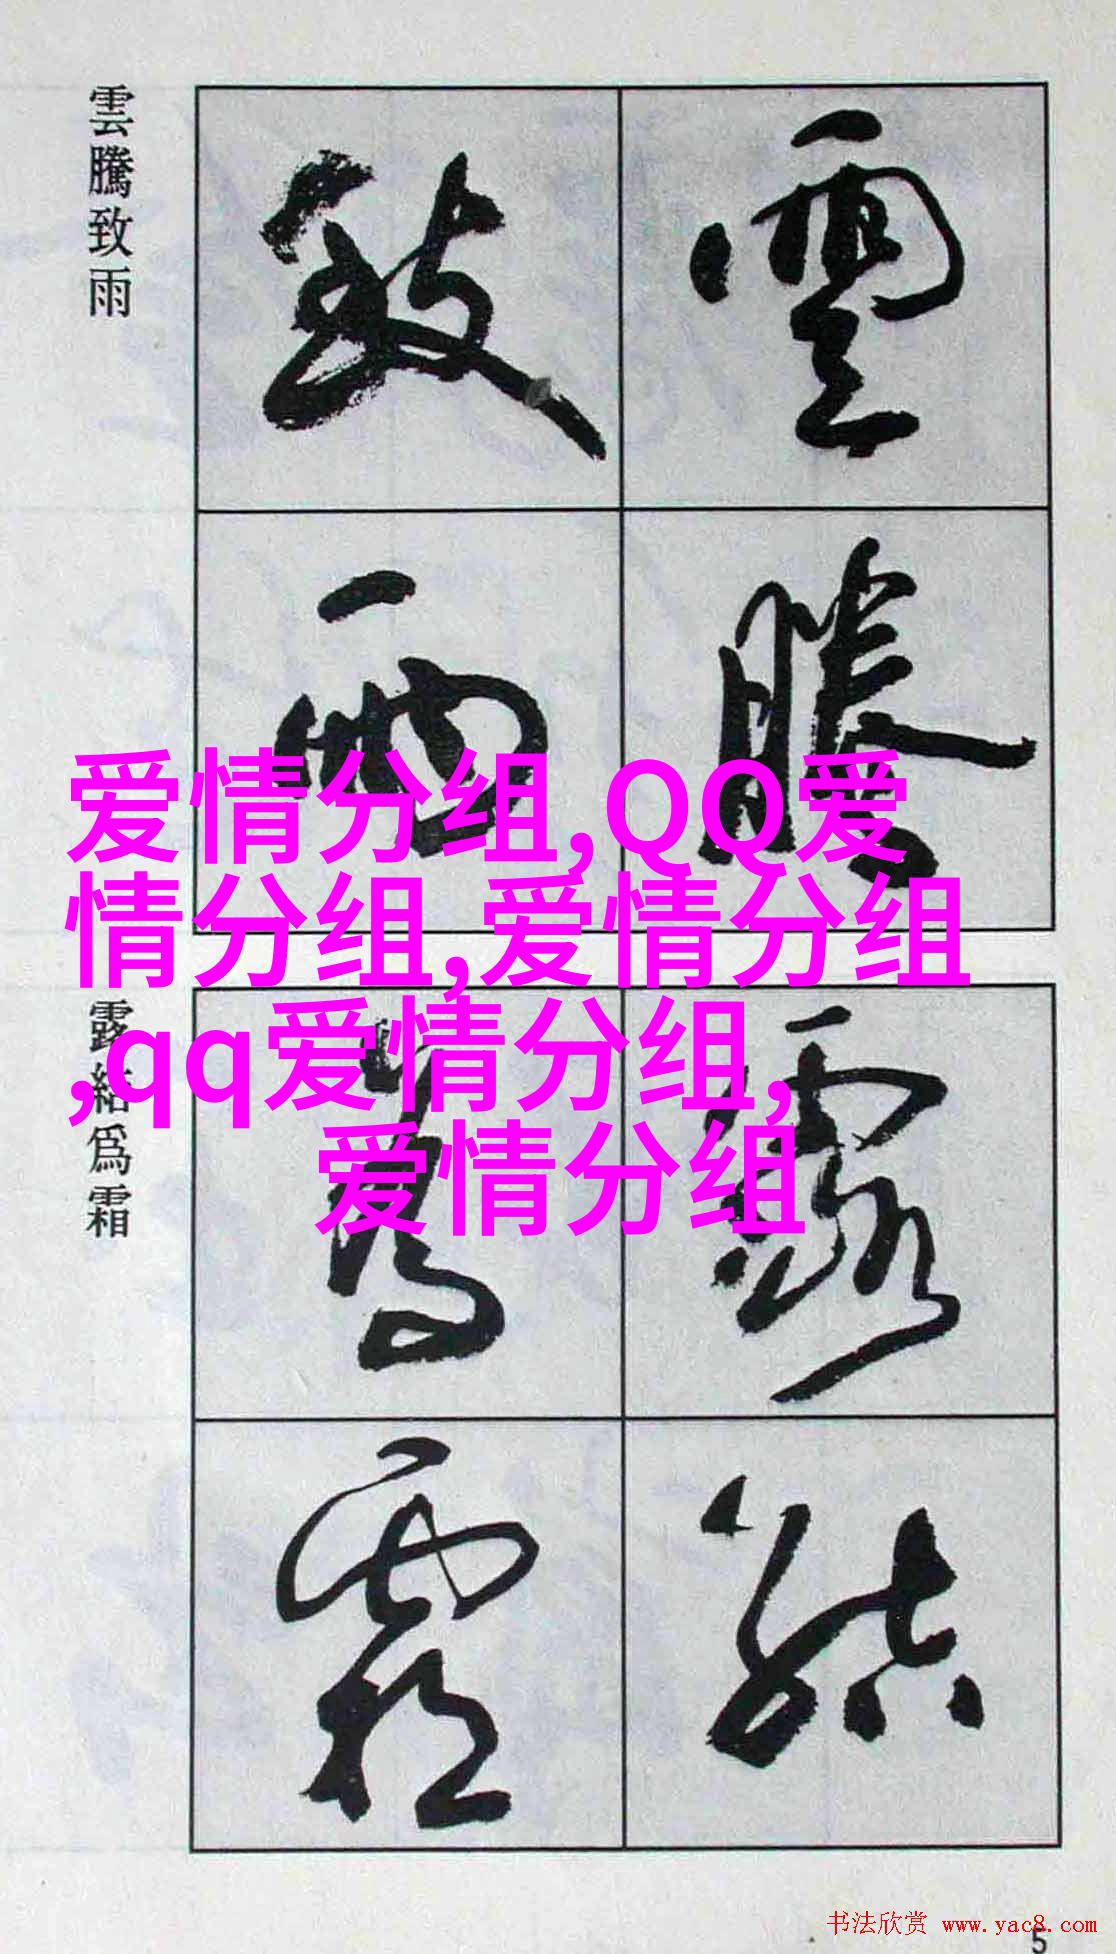 雲騰致雨
雲騰
致雨
爱情分组,QQ爱
情分组,爱情分组
,qq爱情分组,
爱情分组
露結爲霜
露結
爲霜
书法欣赏 www.yac8.com
5